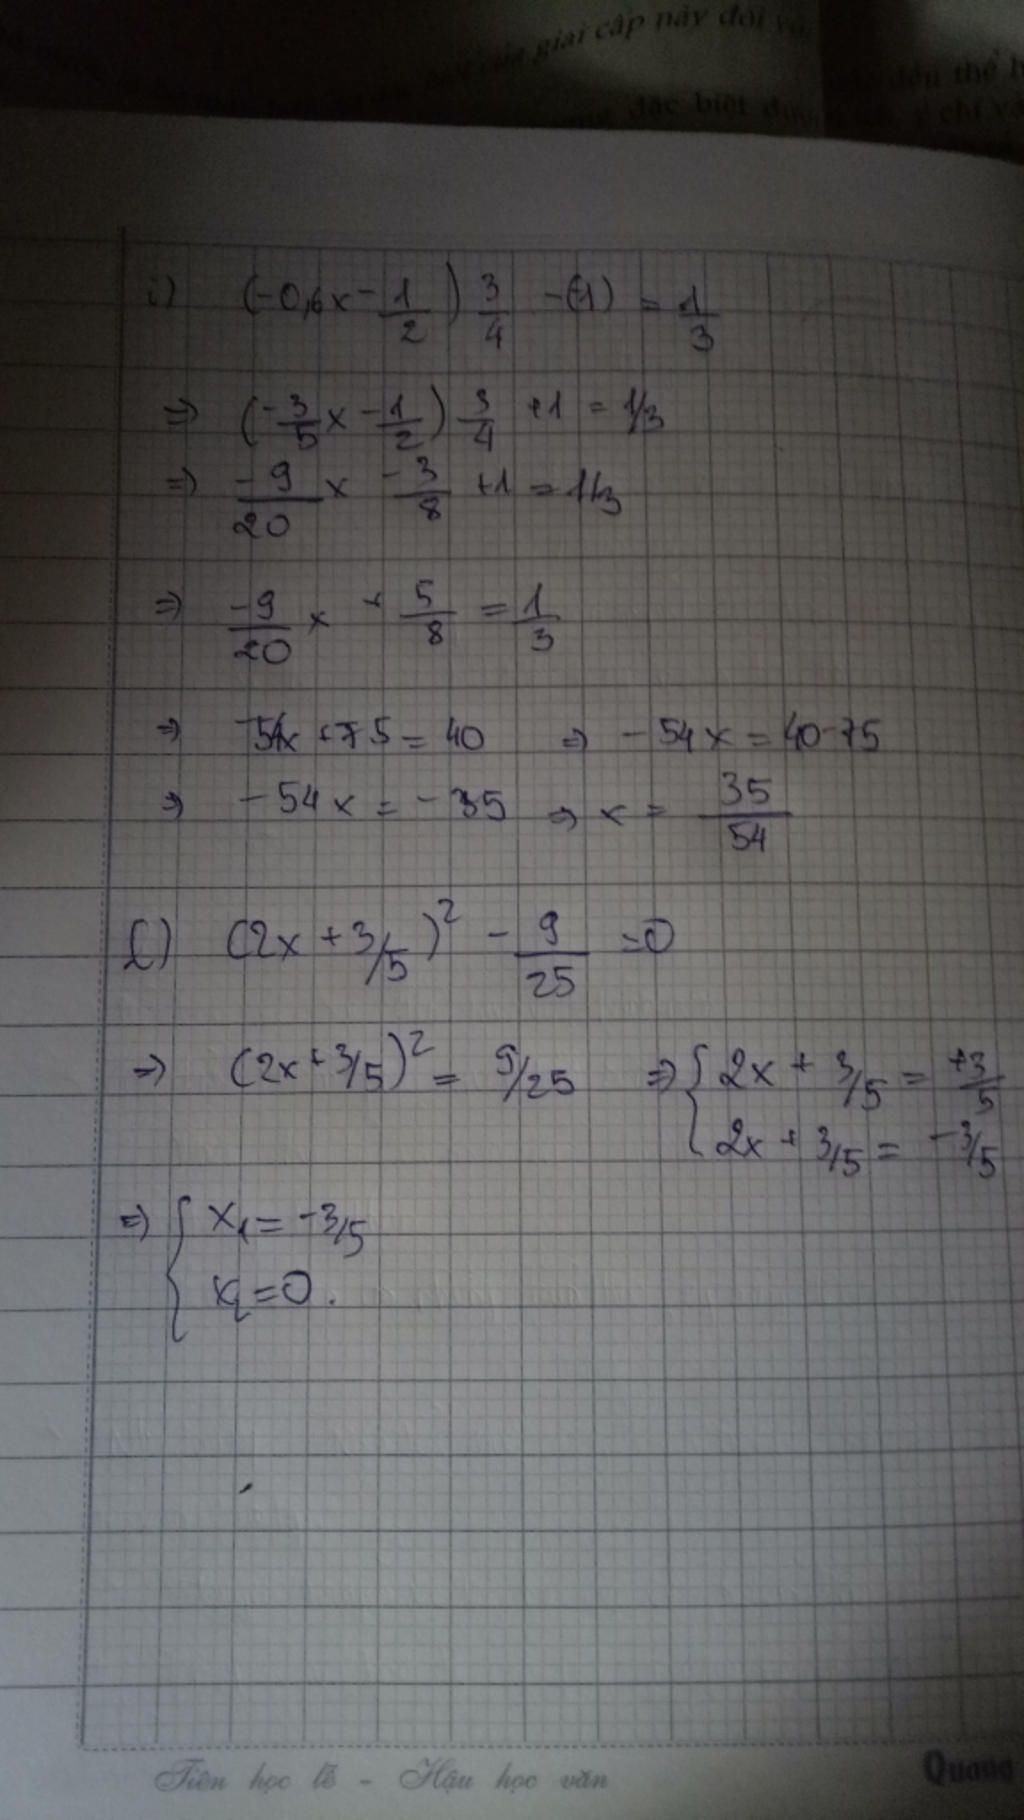 của giai cấp này đối
đặc biệt
i) (-0,6x - 1/2) 3/4 - (-1) = 1/3
=> (-3/5 x - 1/2) 3/4 + 1 = 1/3
=> -9/20 x - 3/8 + 1 = 1/3
=> -9/20 x + 5/8 = 1/3
=> -54x + 75 = 40 => -54x = 40-75
=> -54x = -35 => x = 35/54
l) (2x + 3/5)² - 9/25 = 0
=> (2x + 3/5)² = 9/25 => { 2x + 3/5 = +3/5
2x + 3/5 = -3/5
=> { x₁ = -3/5
x₂ = 0.
Tiên học lễ - Hậu học văn
Quang